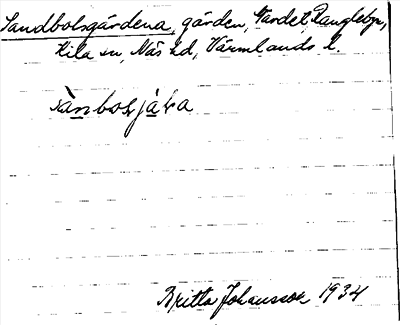 Sandbolsgårdena, gården, Vårdet, Ranglebyn,
Kila sn, Näs hd, Värmlands l.
sànbolsjàka
Britta Johansson 1934